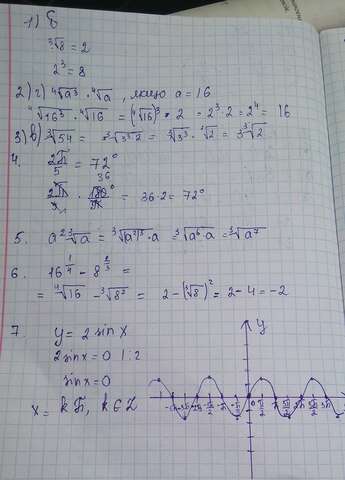 1) б
∛8 = 2
2³ = 8
2) г) ⁴√a³ · ⁴√a , якщо a = 16
⁴√16³ · ⁴√16 = (⁴√16)³ · 2 = 2³ · 2 = 2⁴ = 16
3) в) ∛54 = ∛(3³·2) = ∛3³ · ∛2 = 3∛2
4. 2π/5 = 72°
36
2π/5 · 180°/π = 36·2 = 72°
5. a² ∛a = ∛((a²)³ · a) = ∛(a⁶ · a) = ∛a⁷
6. 16^(1/4) − 8^(2/3) =
= ⁴√16 − ∛8² = 2 − (∛8)² = 2 − 4 = −2
7. y = 2 sin x
2 sin x = 0 | : 2
sin x = 0
x = kπ, k ∈ Z
y
x